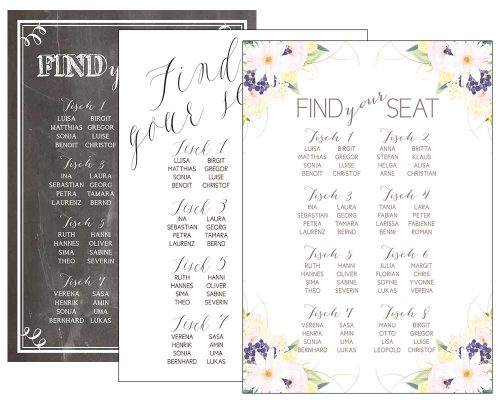 FIND y
Tisch 1
LUISA BIRGIT
MATTHIAS GREGOR
SONJA LUISE
BENOIT CHRISTOF
Tisch 3
INA LAURA
SEBASTIAN GEORG
PETRA TAMARA
LAURENZ BERND
Tisch 5
RUTH HANNI
HANNES OLIVER
SIMA SABINE
THEO SEVERIN
Tisch 7
VERENA SASA
HENRIK AMIN
SONJA UMA
BERNHARD LUKAS
Find
your se
Tisch 1
LUISA BIRGIT
MATTHIAS GREGOR
SONJA LUISE
BENOIT CHRISTOF
Tisch 3
INA LAURA
SEBASTIAN GEORG
PETRA TAMARA
LAURENZ BERND
Tisch 5
RUTH HANNI
HANNES OLIVER
SIMA SABINE
THEO SEVERIN
Tisch 7
VERENA SASA
HENRIK AMIN
SONJA UMA
BERNHARD LUKAS
FIND your SEAT
Tisch 1 Tisch 2
LUISA BIRGIT ANNA BRITTA
MATTHIAS GREGOR STEFAN KLAUS
SONJA LUISE HELGA ALISA
BENOIT CHRISTOF ARNE CHRISTOF
Tisch 3 Tisch 4
INA LAURA TANJA FABIAN
SEBASTIAN GEORG LARISSA PETER
PETRA TAMARA FABIA FABIENNE
LAURENZ BERND BENNI ROMAN
Tisch 5 Tisch 6
RUTH HANNI JULIA MARGIT
HANNES OLIVER FLORIAN CHRIS
SIMA SABINE SOPHIE YVONNE
THEO SEVERIN PATRICK VERENA
Tisch 7 Tisch 8
VERENA SASA MANU BIRGIT
HENRIK AMIN OTTO LUKAS
SONJA UMA LISA LUISE
BERNHARD LUKAS LEOPOLD CHRISTOF